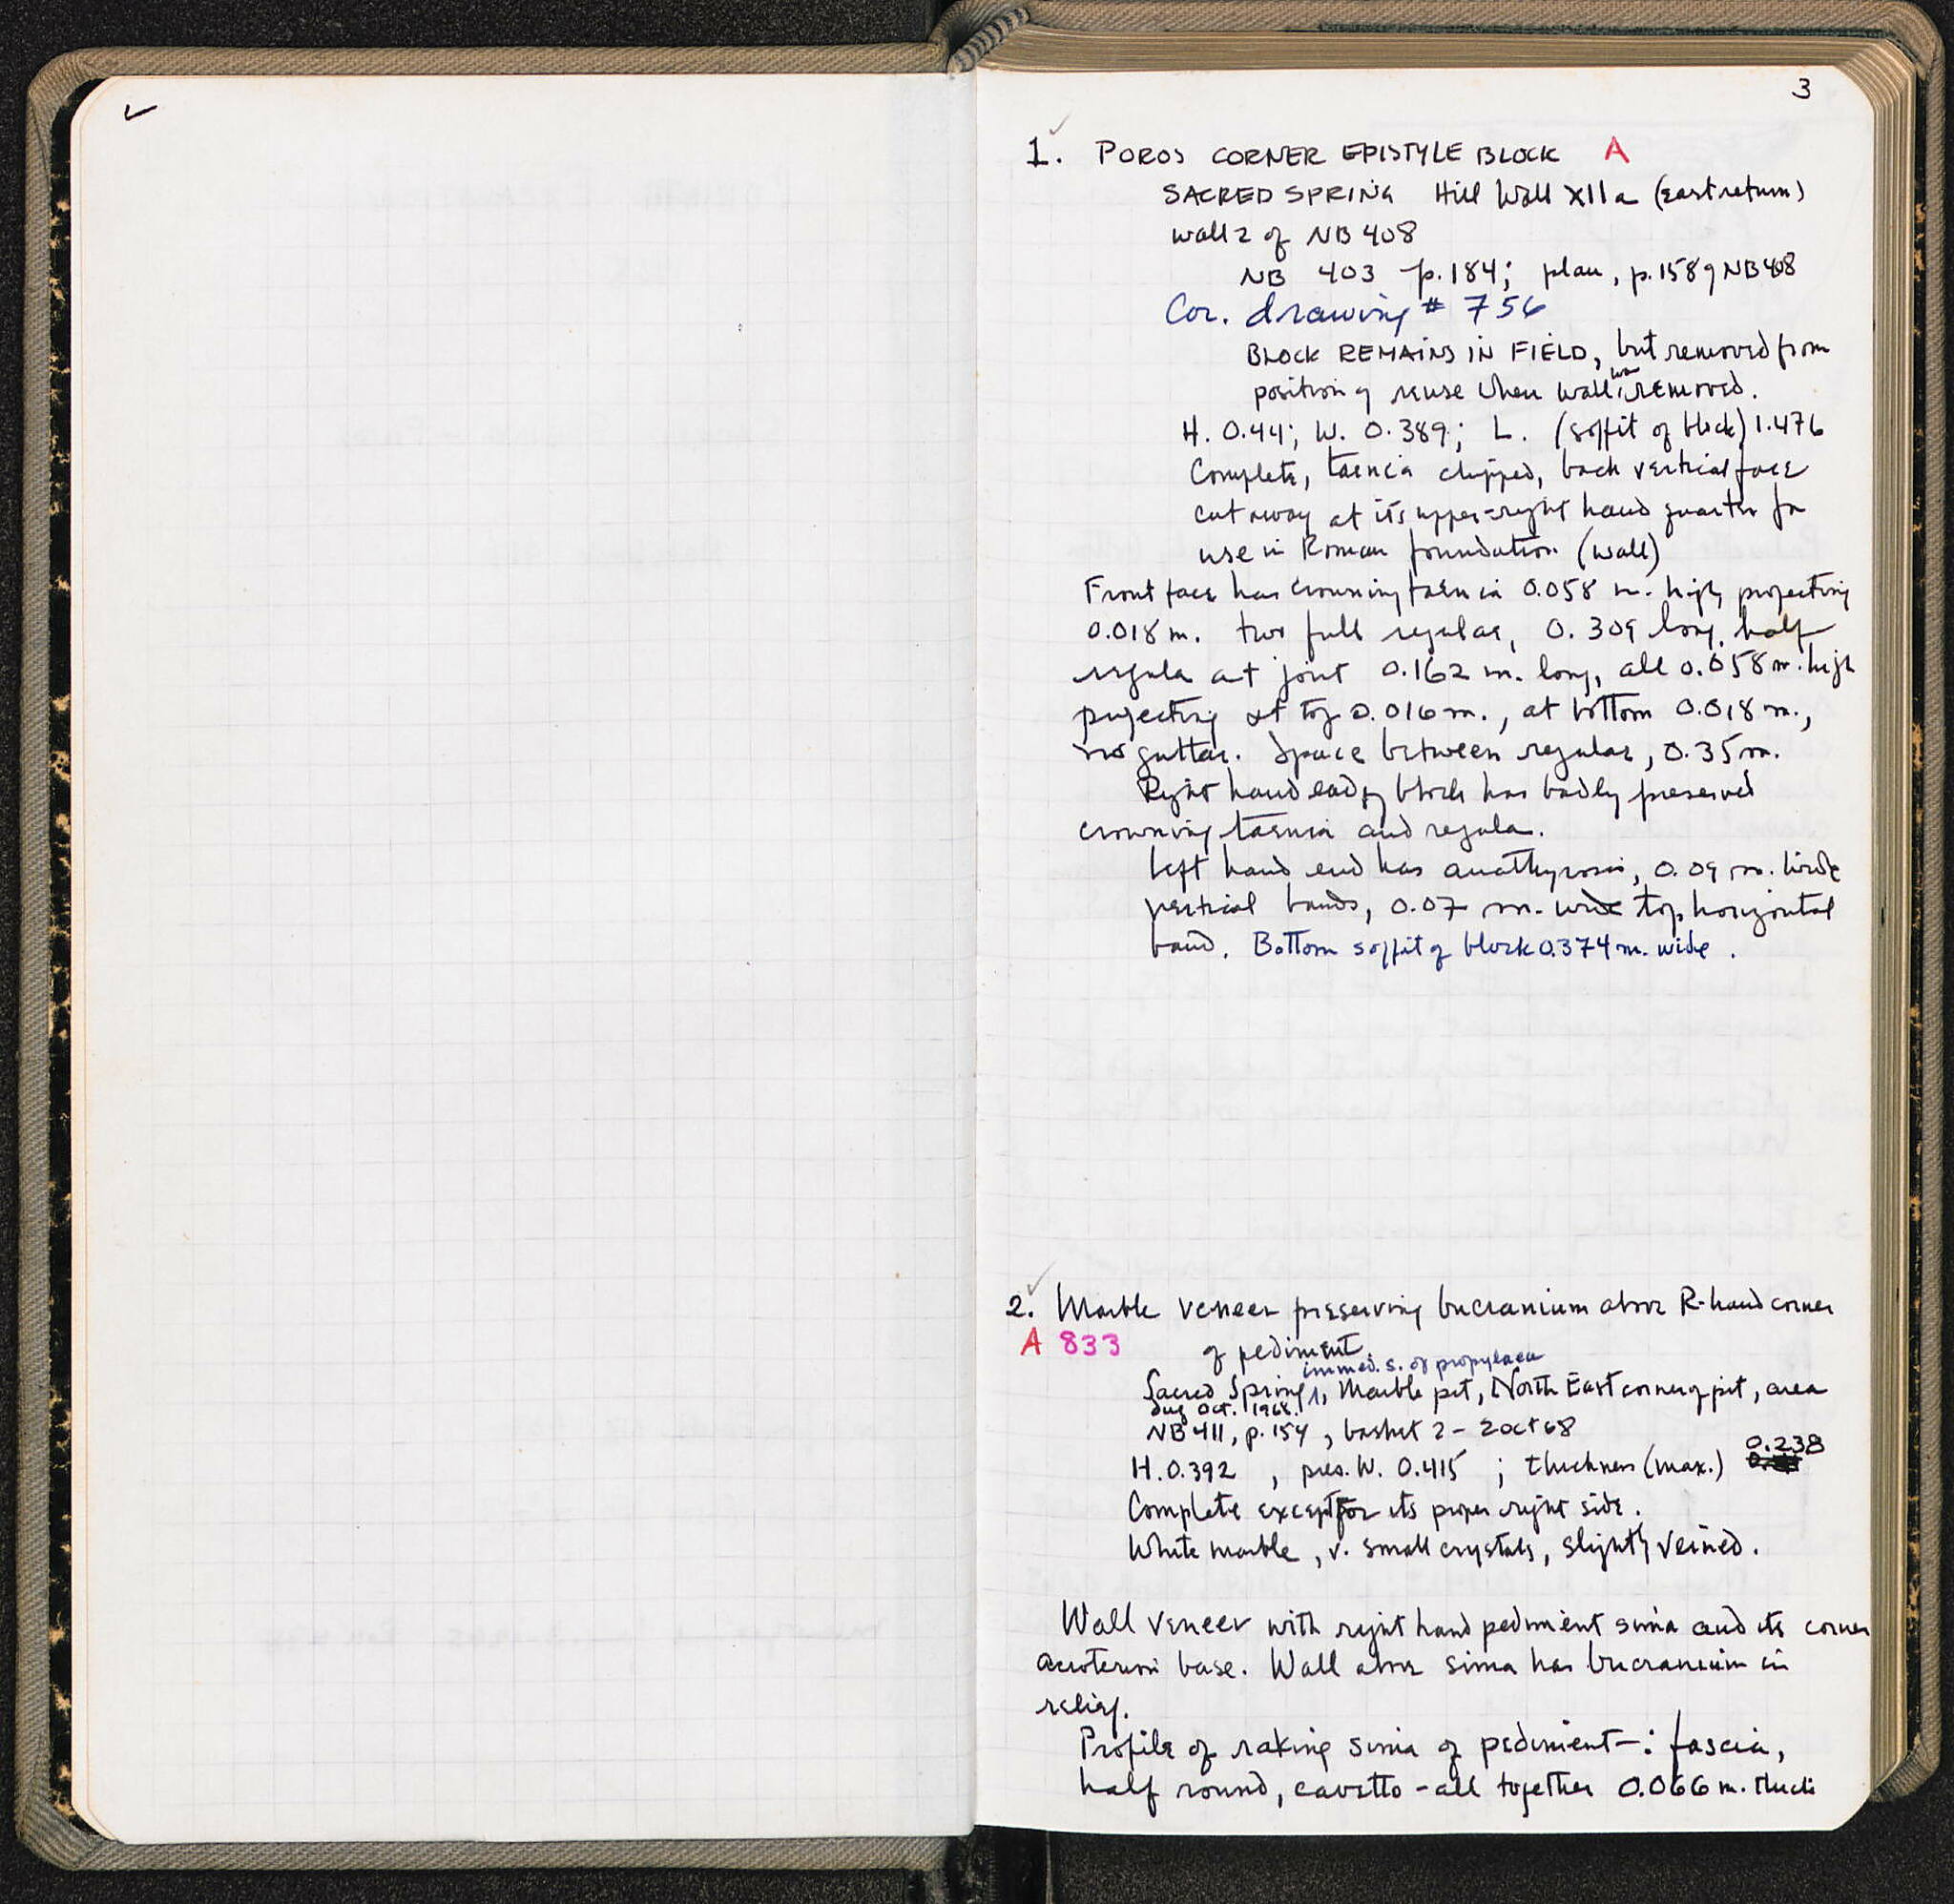 3
1. POROS CORNER EPISTYLE BLOCK A
SACRED SPRING Hill Wall XIIa (east return)
wall 2 of NB 408
NB 403 p. 184; plan, p. 158 of NB 408
Cor. drawing # 756
BLOCK REMAINS IN FIELD, but removed from
position of reuse when wall was removed.
H. 0.44; W. 0.389; L. (soffit of block) 1.476
Complete, taenia chipped, back vertical face
cut away at its upper-right hand quarter for
use in Roman foundation (wall)
Front face has crowning taenia 0.058 m. high, projecting
0.018 m. two full regulae, 0.309 long, half
regula at joint 0.162 m. long, all 0.058 m. high
projecting at top 0.016 m., at bottom 0.018 m.,
no guttae. Space between regulae, 0.35 m.
Right hand end of block has badly preserved
crowning taenia and regula.
Left hand end has anathyrosis, 0.09 m. wide
vertical bands, 0.07 m. wide top horizontal
band. Bottom soffit of block 0.374 m. wide.
2. Marble veneer preserving bucranium above R-hand corner
A 833 of pediment
immed. s. of propylaea
Sacred Spring, Marble pit, North East corner of pit, area
dug Oct. 1968.
NB 411, p. 154, basket 2 - 2 Oct 68
H. 0.392, pres. W. 0.415; thickness (max.) 0.238
Complete except for its proper right side.
White marble, v. small crystals, slightly veined.
Wall veneer with right hand pediment sima and its corner
acroterion base. Wall above sima has bucranium in
relief.
Profile of raking sima of pediment-: fascia,
half round, cavetto - all together 0.066 m. thick